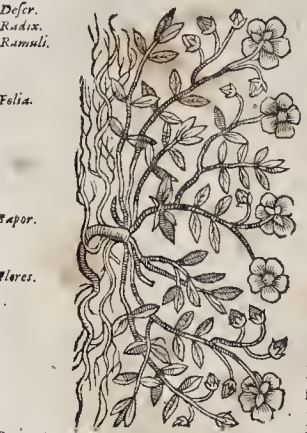 Descr.
Radix.
Ramuli.
Folia.
Sapor.
Flores.